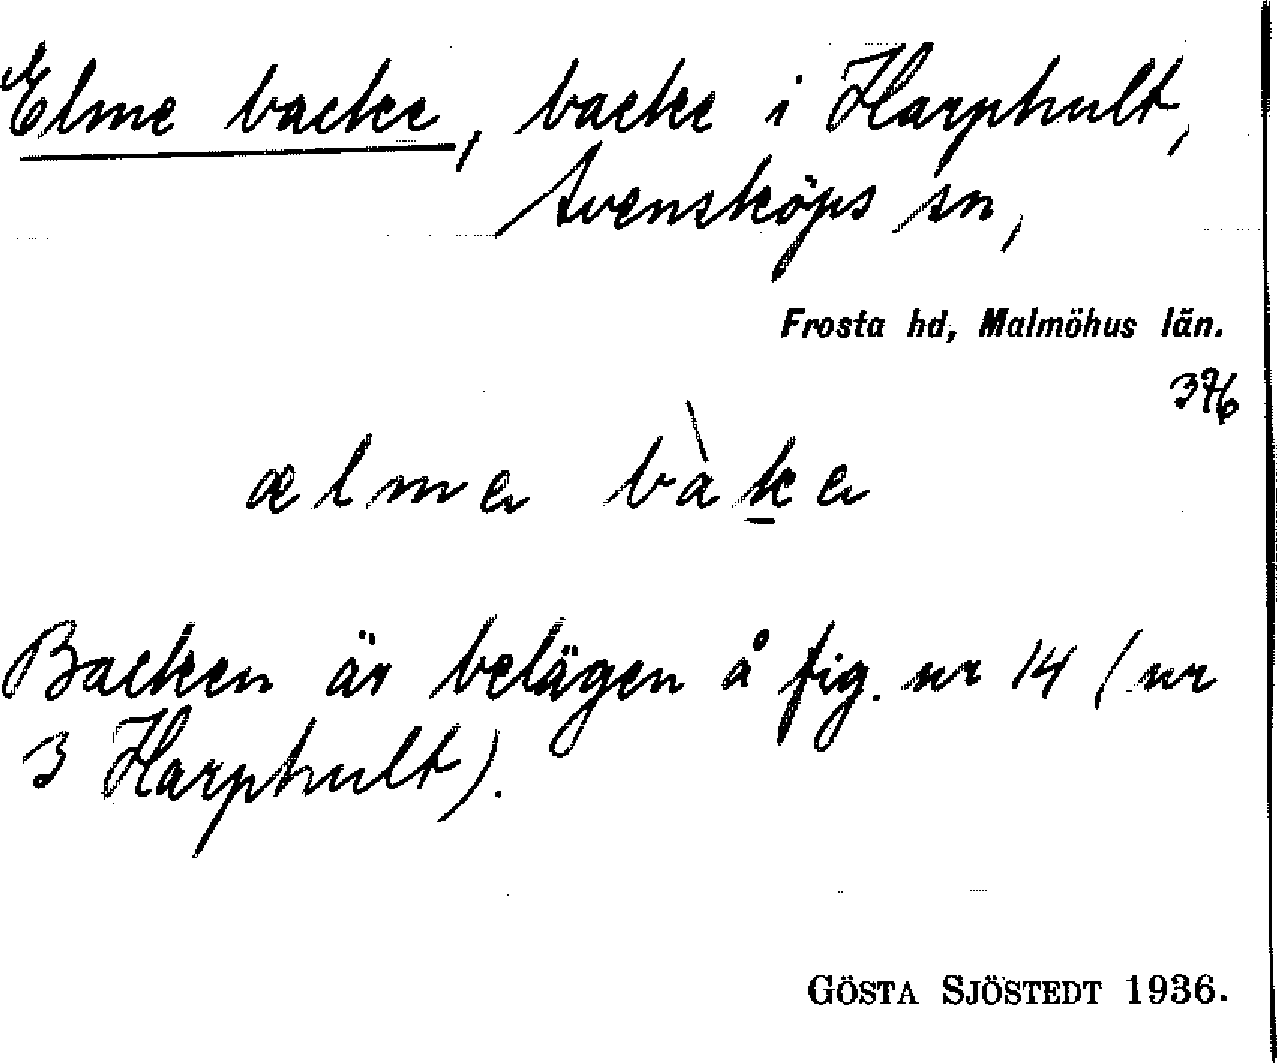 Elme backe, backe i Harphult,
Svensköps sn,
Frosta hd, Malmöhus län.
376
ælmə bàkə
Backen är belägen å fig. nr 14 (nr
3 Harphult).
GÖSTA SJÖSTEDT 1936.